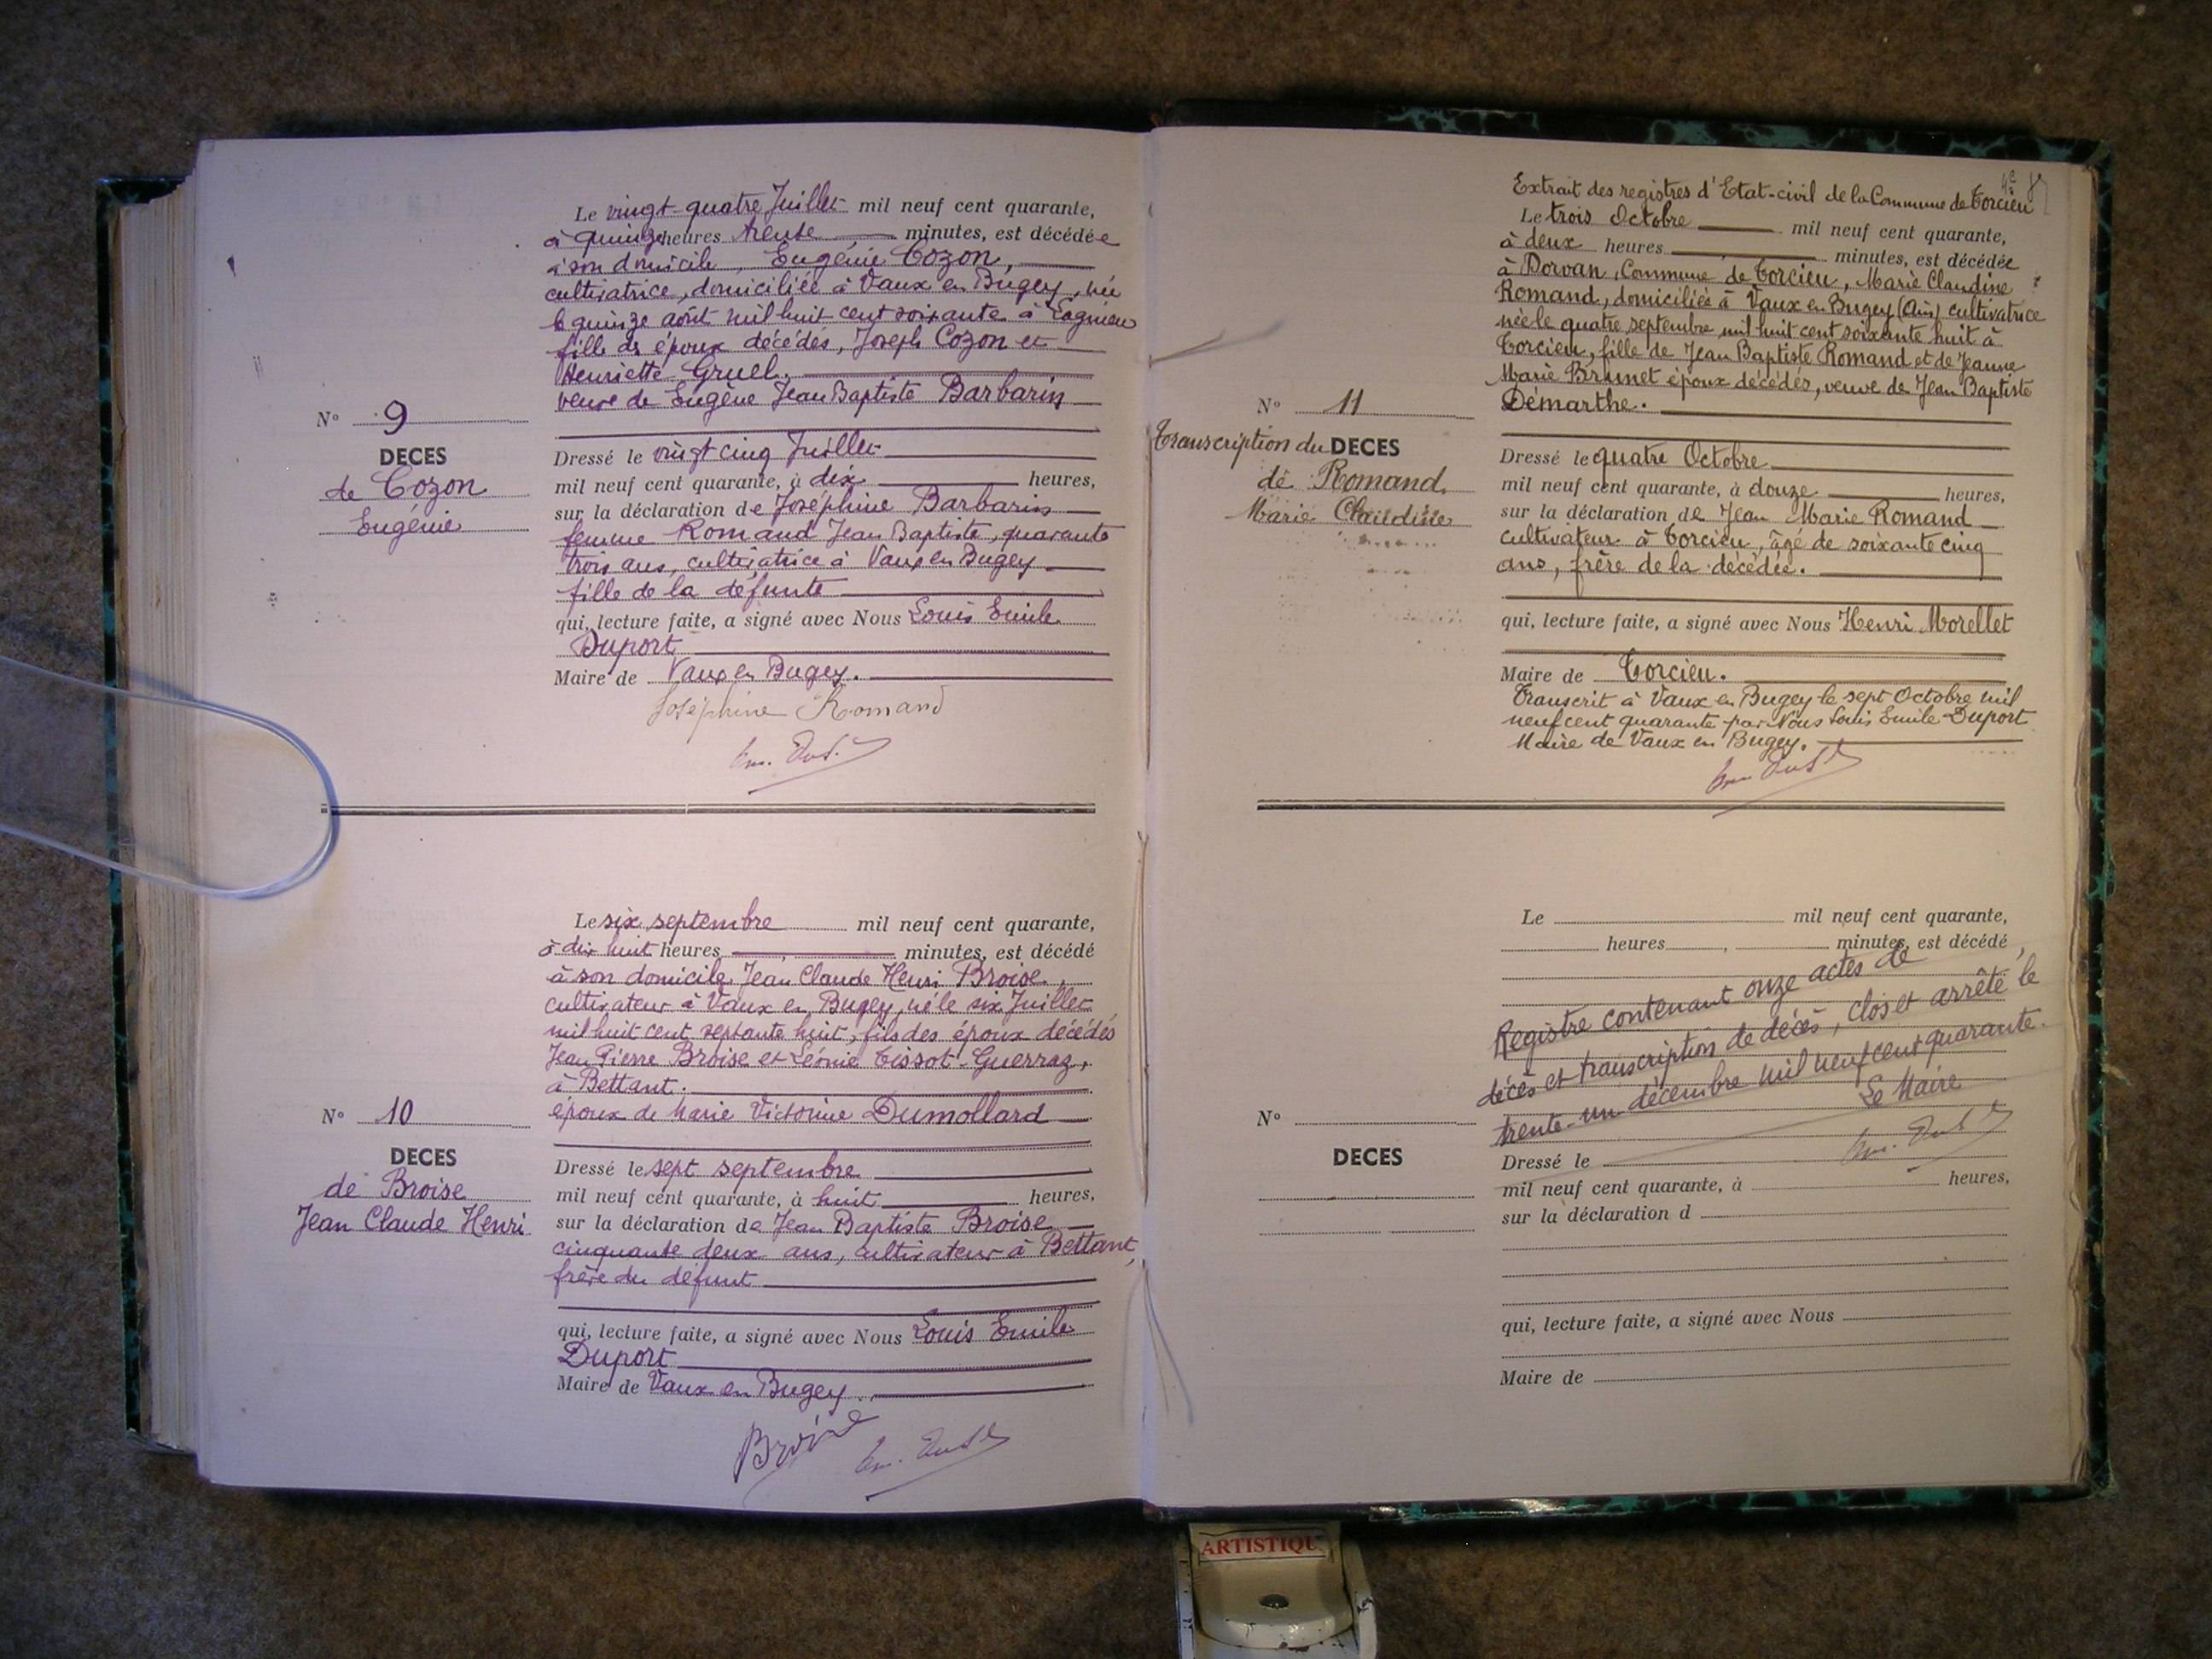 Le vingt-quatre Juillet mil neuf cent quarante,
à quinze heures trente minutes, est décédée
à son domicile, Eugénie Cozon,
cultivatrice, domiciliée à Vaux en Bugey, née
le quinze août mil huit cent soixante à Lagnieu
fille des époux décédés, Joseph Cozon et
Henriette Gruel.
veuve de Eugène Jean Baptiste Barbarin
N° 9
DECES
de Cozon
Eugénie
Dressé le vingt cinq Juillet
mil neuf cent quarante, à dix heures,
sur la déclaration de Joséphine Barbarin
femme Romand Jean Baptiste, quarante
trois ans, cultivatrice à Vaux en Bugey
fille de la défunte
qui, lecture faite, a signé avec Nous Louis Emile
Duport
Maire de Vaux en Bugey.
Joséphine Romand
Le six septembre mil neuf cent quarante,
à dix huit heures, minutes, est décédé
à son domicile, Jean Claude Henri Broise,
cultivateur à Vaux en Bugey, né le six Juillet
mil huit cent septante huit, fils des époux décédés
Jean Pierre Broise et Léonie Tissot-Guerraz,
à Bettant.
époux de Marie Victorine Dumollard
N° 10
DECES
de Broise
Jean Claude Henri
Dressé le sept septembre
mil neuf cent quarante, à huit heures,
sur la déclaration de Jean Baptiste Broise
cinquante deux ans, cultivateur à Bettant,
frère du défunt
qui, lecture faite, a signé avec Nous Louis Emile
Duport
Maire de Vaux en Bugey.
Broise
Extrait des registres d'Etat-civil de la Commune de Torcieu
Le trois Octobre mil neuf cent quarante,
à deux heures minutes, est décédée
à Dorvan, Commune de Torcieu, Marie Claudine
Romand, domiciliée à Vaux en Bugey (Ain) cultivatrice
née le quatre septembre mil huit cent soixante huit à
Torcieu, fille de Jean Baptiste Romand et de Jeanne
Marie Brunet époux décédés, veuve de Jean Baptiste
Démarthe.
N° 11
Transcription du DECES
de Romand
Marie Claudine
Dressé le quatre Octobre
mil neuf cent quarante, à douze heures,
sur la déclaration de Jean Marie Romand
cultivateur à Torcieu, âgé de soixante cinq
ans, frère de la décédée.
qui, lecture faite, a signé avec Nous Henri Morellet
Maire de Torcieu.
Transcrit à Vaux en Bugey le sept Octobre mil
neuf cent quarante par Nous Louis Emile Duport
Maire de Vaux en Bugey.
Le mil neuf cent quarante,
heures, minutes, est décédé
Registre contenant onze actes de
décès et transcription de décès, clos et arrêté le
trente-un décembre mil neuf cent quarante.
Le Maire
N°
DECES
Dressé le
mil neuf cent quarante, à heures,
sur la déclaration d
qui, lecture faite, a signé avec Nous
Maire de
ARTISTIQU